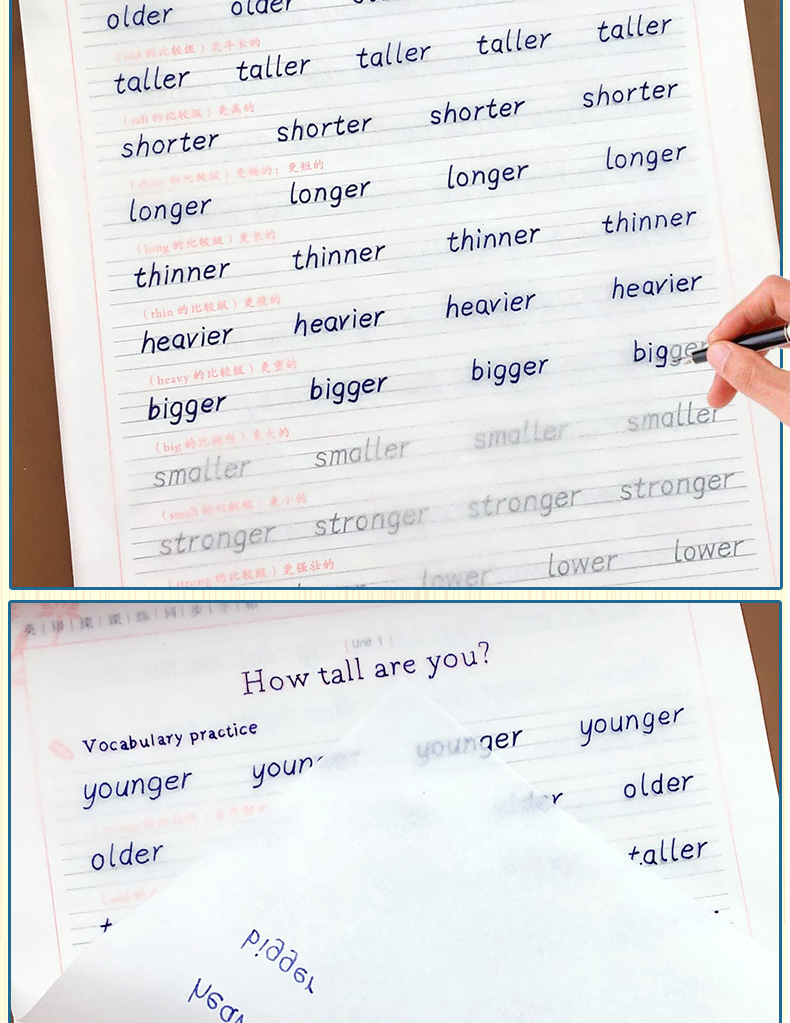 older older
（old的比较级）更年长的
taller taller taller taller taller
（tall的比较级）更高的
shorter shorter shorter shorter
（short的比较级）更矮的；更短的
longer longer longer longer
（long的比较级）更长的
thinner thinner thinner thinner
（thin的比较级）更瘦的
heavier heavier heavier heavier
（heavy的比较级）更重的
bigger bigger bigger bigger
（big的比较级）更大的
smaller smaller smaller smaller
（small的比较级）更小的
stronger stronger stronger stronger
（strong的比较级）更强壮的
lower lower lower
英|语|课|课|练|同|步|字|帖
Unit 1
How tall are you?
Vocabulary practice
younger younger younger younger
older older older
taller
bigger
heav